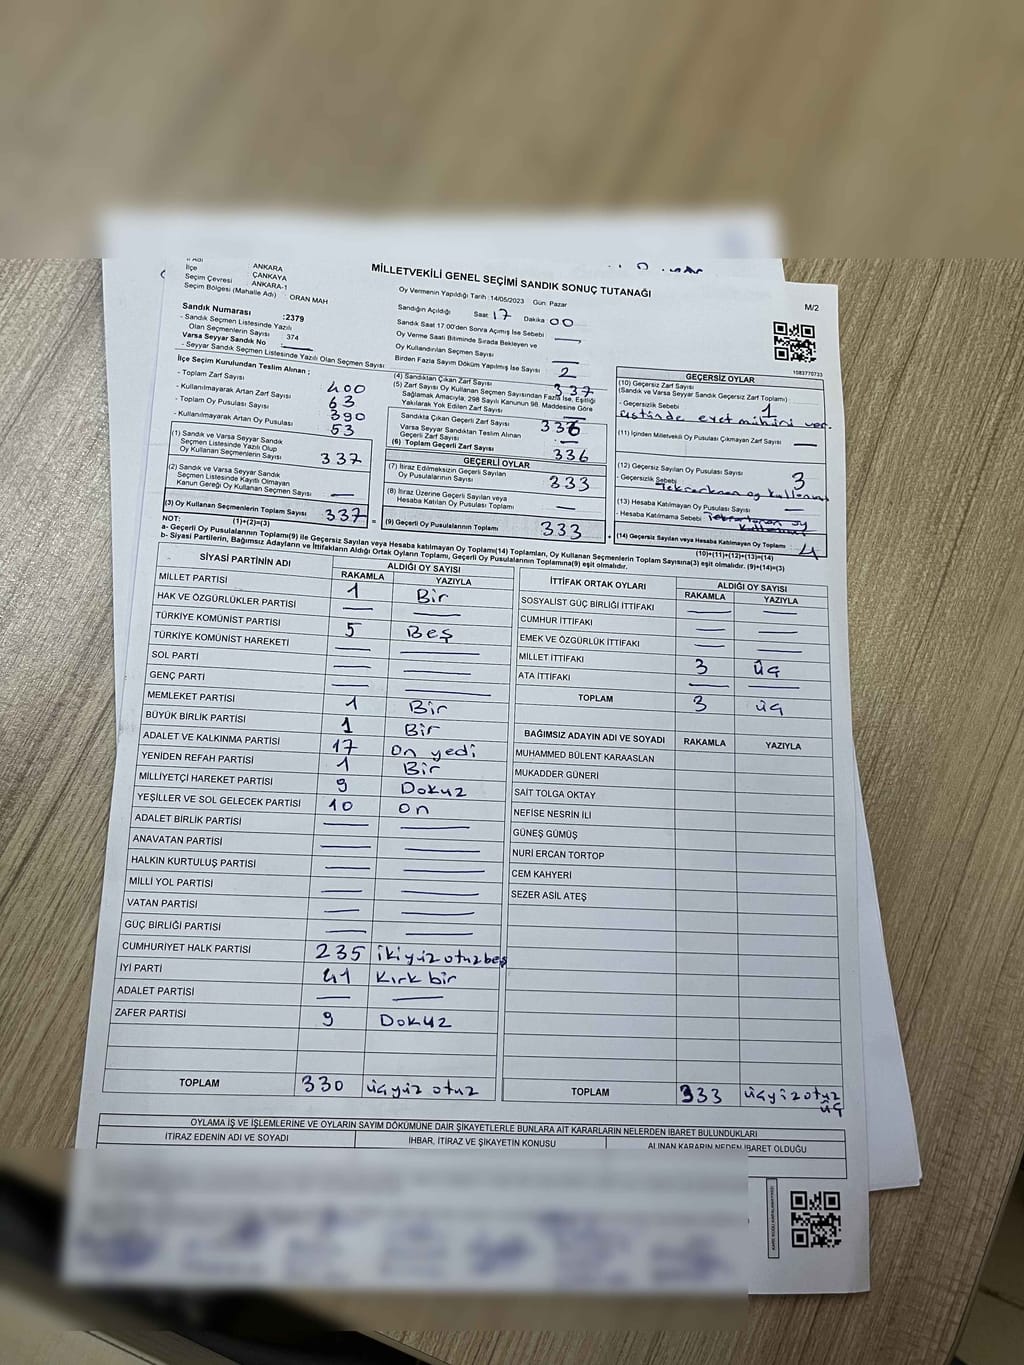 MİLLETVEKİLİ GENEL SEÇİMİ SANDIK SONUÇ TUTANAĞI
M/2
1083770733
İlçe : ANKARA
Seçim Çevresi : ÇANKAYA
ANKARA-1
Seçim Bölgesi (Mahalle Adı) : ORAN MAH
Sandık Numarası :2379
- Sandık Seçmen Listesinde Yazılı
Olan Seçmenlerin Sayısı : 374
Varsa Seyyar Sandık No
- Seyyar Sandık Seçmen Listesinde Yazılı Olan Seçmen Sayısı
Oy Vermenin Yapıldığı Tarih : 14/05/2023 Gün: Pazar
Sandığın Açıldığı Saat 17 Dakika 00
Sandık Saat 17:00'den Sonra Açılmış İse Sebebi
Oy Verme Saati Bitiminde Sırada Bekleyen ve
Oy Kullandırılan Seçmen Sayısı
Birden Fazla Sayım Döküm Yapılmış İse Sayısı 2
İlçe Seçim Kurulundan Teslim Alınan :
- Toplam Zarf Sayısı 400
- Kullanılmayarak Artan Zarf Sayısı 63
- Toplam Oy Pusulası Sayısı 390
- Kullanılmayarak Artan Oy Pusulası 53
(1) Sandık ve Varsa Seyyar Sandık
Seçmen Listesinde Yazılı Olup
Oy Kullanan Seçmenlerin Sayısı 337
(2) Sandık ve Varsa Seyyar Sandık
Seçmen Listesinde Kayıtlı Olmayan
Kanun Gereği Oy Kullanan Seçmen Sayısı
(3) Oy Kullanan Seçmenlerin Toplam Sayısı 337
(1)+(2)=(3)
(4) Sandıktan Çıkan Zarf Sayısı 337
(5) Zarf Sayısı Oy Kullanan Seçmen Sayısından Fazla İse, Eşitliği
Sağlamak Amacıyla, 298 Sayılı Kanunun 98. Maddesine Göre
Yakılarak Yok Edilen Zarf Sayısı
Sandıkta Çıkan Geçerli Zarf Sayısı 336
Varsa Seyyar Sandıktan Teslim Alınan
Geçerli Zarf Sayısı
(6) Toplam Geçerli Zarf Sayısı 336
GEÇERLİ OYLAR
(7) İtiraz Edilmeksizin Geçerli Sayılan
Oy Pusulalarının Sayısı 333
(8) İtiraz Üzerine Geçerli Sayılan veya
Hesaba Katılan Oy Pusulası Toplamı
(9) Geçerli Oy Pusulalarının Toplamı 333
GEÇERSİZ OYLAR
(10) Geçersiz Zarf Sayısı
(Sandık ve Varsa Seyyar Sandık Geçersiz Zarf Toplamı) : 1
- Geçersizlik Sebebi
üstünde evet mührü var.
(11) İçinden Milletvekili Oy Pusulası Çıkmayan Zarf Sayısı
(12) Geçersiz Sayılan Oy Pusulası Sayısı 3
- Geçersizlik Sebebi
(13) Hesaba Katılmayan Oy Pusulası Sayısı
- Hesaba Katılmama Sebebi
(14) Geçersiz Sayılan veya Hesaba Katılmayan Oy Toplamı 4
(10)+(11)+(12)+(13)=(14)
NOT:
a- Geçerli Oy Pusulalarının Toplamı(9) ile Geçersiz Sayılan veya Hesaba katılmayan Oy Toplamı(14) Toplamları, Oy Kullanan Seçmenlerin Toplam Sayısına(3) eşit olmalıdır. (9)+(14)=(3)
b- Siyasi Partilerin, Bağımsız Adayların ve İttifakların Aldığı Ortak Oyların Toplamı, Geçerli Oy Pusulalarının Toplamına(9) eşit olmalıdır.
SİYASİ PARTİNİN ADI ALDIĞI OY SAYISI
RAKAMLA YAZIYLA
MİLLET PARTİSİ 1 Bir
HAK VE ÖZGÜRLÜKLER PARTİSİ
TÜRKİYE KOMÜNİST PARTİSİ 5 Beş
TÜRKİYE KOMÜNİST HAREKETİ
SOL PARTİ
GENÇ PARTİ
MEMLEKET PARTİSİ 1 Bir
BÜYÜK BİRLİK PARTİSİ 1 Bir
ADALET VE KALKINMA PARTİSİ 17 On yedi
YENİDEN REFAH PARTİSİ 1 Bir
MİLLİYETÇİ HAREKET PARTİSİ 9 Dokuz
YEŞİLLER VE SOL GELECEK PARTİSİ 10 on
ADALET BİRLİK PARTİSİ
ANAVATAN PARTİSİ
HALKIN KURTULUŞ PARTİSİ
MİLLİ YOL PARTİSİ
VATAN PARTİSİ
GÜÇ BİRLİĞİ PARTİSİ
CUMHURİYET HALK PARTİSİ 235 ikiyüz otuzbeş
İYİ PARTİ 41 Kırk bir
ADALET PARTİSİ
ZAFER PARTİSİ 9 Dokuz
TOPLAM 330 üçyüz otuz
İTTİFAK ORTAK OYLARI ALDIĞI OY SAYISI
RAKAMLA YAZIYLA
SOSYALİST GÜÇ BİRLİĞİ İTTİFAKI
CUMHUR İTTİFAKI
EMEK VE ÖZGÜRLÜK İTTİFAKI
MİLLET İTTİFAKI 3 üç
ATA İTTİFAKI
TOPLAM 3 üç
BAĞIMSIZ ADAYIN ADI VE SOYADI RAKAMLA YAZIYLA
MUHAMMED BÜLENT KARAASLAN
MUKADDER GÜNERİ
SAİT TOLGA OKTAY
NEFİSE NESRİN İLİ
GÜNEŞ GÜMÜŞ
NURİ ERCAN TORTOP
CEM KAHYERİ
SEZER ASİL ATEŞ
TOPLAM 333 üçyüzotuz
üç
OYLAMA İŞ VE İŞLEMLERİNE VE OYLARIN SAYIM DÖKÜMÜNE DAİR ŞİKAYETLERLE BUNLARA AİT KARARLARIN NELERDEN İBARET BULUNDUKLARI
İTİRAZ EDENİN ADI VE SOYADI İHBAR, İTİRAZ VE ŞİKAYETİN KONUSU ALINAN KARARIN NEDEN İBARET OLDUĞU